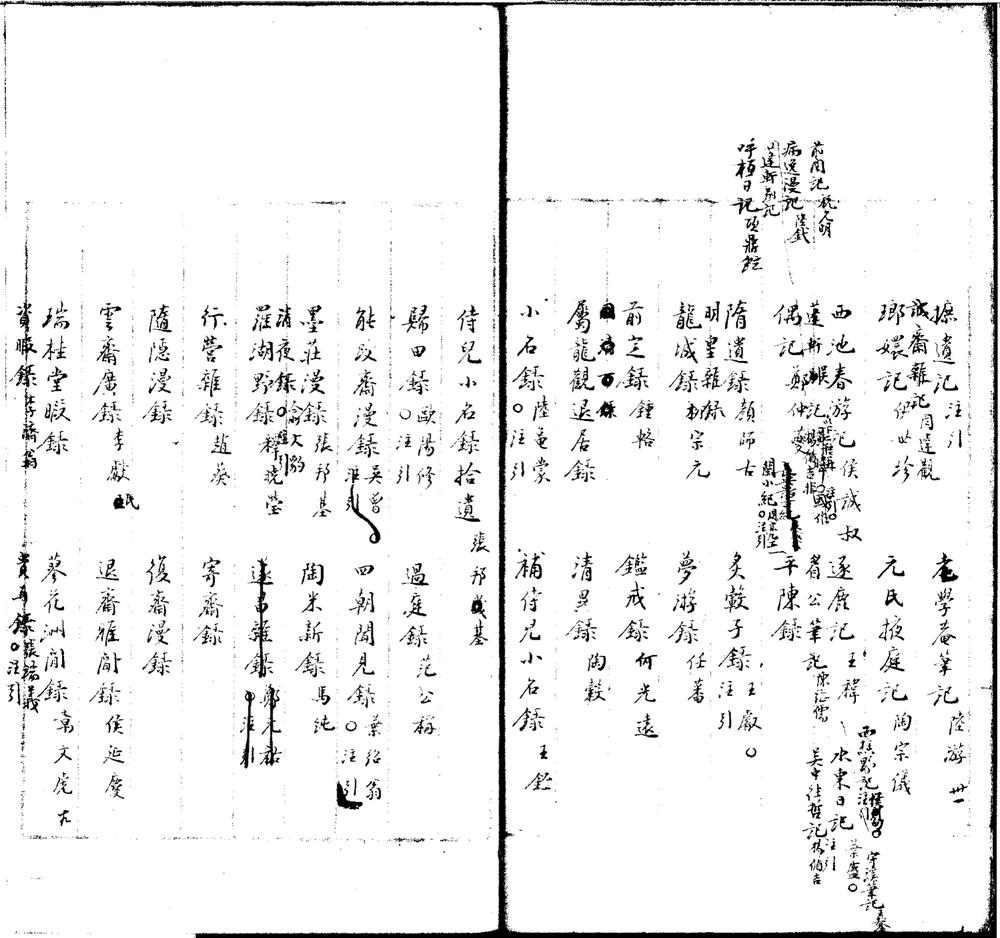 前聞記 祝允明
病逸漫記 陸釴
呼桓日記 項鼎鉉
摭遺記 注引
老學菴筆記 陸游
誠齋雜記 周達觀
瑯嬛記 伊世珍
元氏掖庭記 陶宗儀
西池春游記 侯誠叔
逐鹿記 王禕
水東日記 注引 葉盛○
偶記 鄭仲夔
平陳錄
吳中往哲記 楊循吉
閩小紀 周亮工○注引
隋遺錄 顏師古
炙轂子錄 注引 王叡○
明皇雜錄
龍城錄 柳宗元
夢游錄 任蕃
前定錄 鍾輅
鑑戒錄 何光遠
屬龍觀退居錄
清異錄 陶穀
小名錄○ 陸龜蒙 注引
補侍兒小名錄 王銍
侍兒小名錄拾遺 張邦基
歸田錄○ 歐陽修 注引
過庭錄 范公稱
能改齋漫錄 吳曾 注引
四朝聞見錄○ 葉紹翁 注引
墨莊漫錄 張邦基
陶朱新錄 馬純
清夜錄○ 俞文豹 注引
羅湖野錄 釋曉瑩
遂昌雜錄○ 鄭元祐 注引
行營雜錄 趙葵
寄齋錄
隨隱漫錄
復齋漫錄
雲齋廣錄 李獻民
退齋雅聞錄 侯延慶
瑞桂堂暇錄
蓼花洲閒錄 高文虎
資暇錄 李濟翁